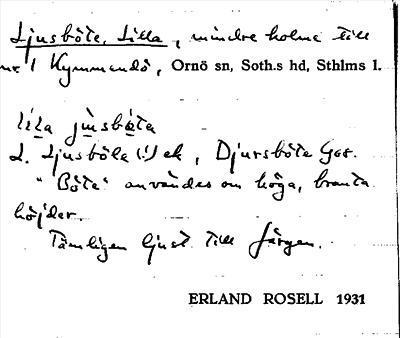 Ljusböte, Lilla, mindre holme till
nr 1 Kymmendö, Ornö sn, Soth.s hd, Sthlms l.
lìla jùsbǿta
L. Ljusböte (!) ek, Djursböte Gsk.
"Böte" användes om höga, branta
höjder.
Tämligen ljust till färgen.
ERLAND ROSELL 1931